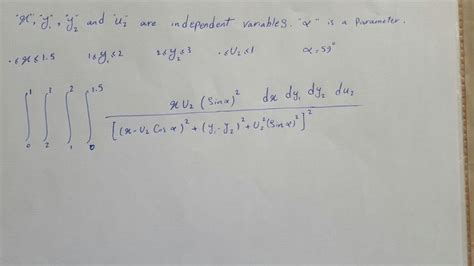 "x", "y₁", "y₂" and "u₂" are independent variables. "α" is a parameter.
0≤x≤1.5 1≤y₁≤2 2≤y₂≤3 0≤U₂≤1 α, 59°
∫₀¹ ∫₂³ ∫₁² ∫₀^1.5 x U₂ (Sin α)² dx dy₁ dy₂ du₂
[(x-U₂ Cos α)² + (y₁-y₂)² + U₂² (Sin α)²]²